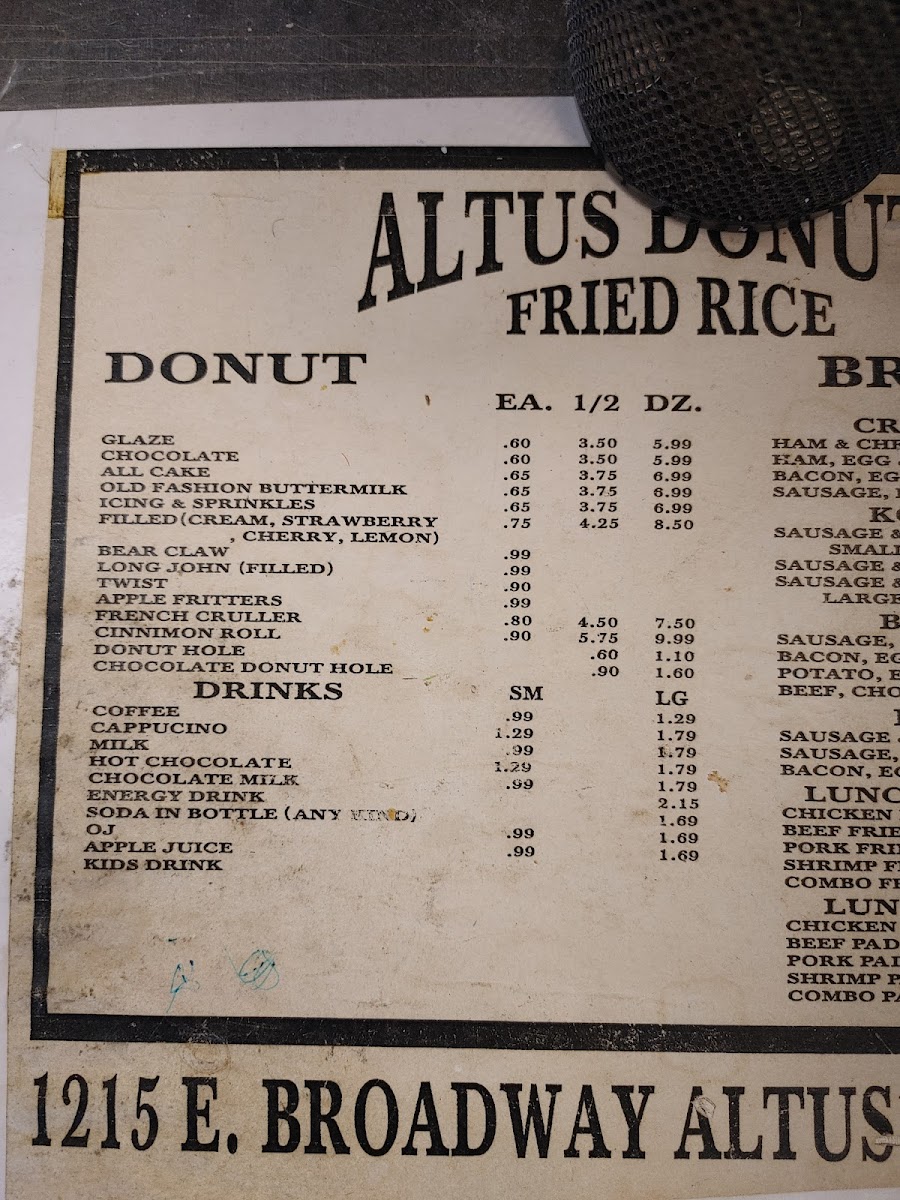 ALTUS DONUT
FRIED RICE
DONUT
EA. 1/2 DZ.
GLAZE .60 3.50 5.99
CHOCOLATE .60 3.50 5.99
ALL CAKE .65 3.75 6.99
OLD FASHION BUTTERMILK .65 3.75 6.99
ICING & SPRINKLES .65 3.75 6.99
FILLED(CREAM, STRAWBERRY .75 4.25 8.50
, CHERRY, LEMON)
BEAR CLAW .99
LONG JOHN (FILLED) .99
TWIST .90
APPLE FRITTERS .99
FRENCH CRULLER .80 4.50 7.50
CINNIMON ROLL .90 5.75 9.99
DONUT HOLE .60 1.10
CHOCOLATE DONUT HOLE .90 1.60
DRINKS SM LG
COFFEE .99 1.29
CAPPUCINO 1.29 1.79
MILK .99 1.79
HOT CHOCOLATE 1.29 1.79
CHOCOLATE MILK .99 1.79
ENERGY DRINK 2.15
SODA IN BOTTLE (ANY KIND) 1.69
OJ .99 1.69
APPLE JUICE .99 1.69
KIDS DRINK
BR
CR
HAM & CHE
HAM, EGG
BACON, EG
SAUSAGE,
KO
SAUSAGE &
SMALL
SAUSAGE &
SAUSAGE &
LARGE
B
SAUSAGE,
BACON, EG
POTATO, E
BEEF, CHO
SAUSAGE
SAUSAGE,
BACON, EG
LUNC
CHICKEN
BEEF FRIE
PORK FRI
SHRIMP F
COMBO F
LUN
CHICKEN
BEEF PAD
PORK PAD
SHRIMP P
COMBO PA
1215 E. BROADWAY ALTUS